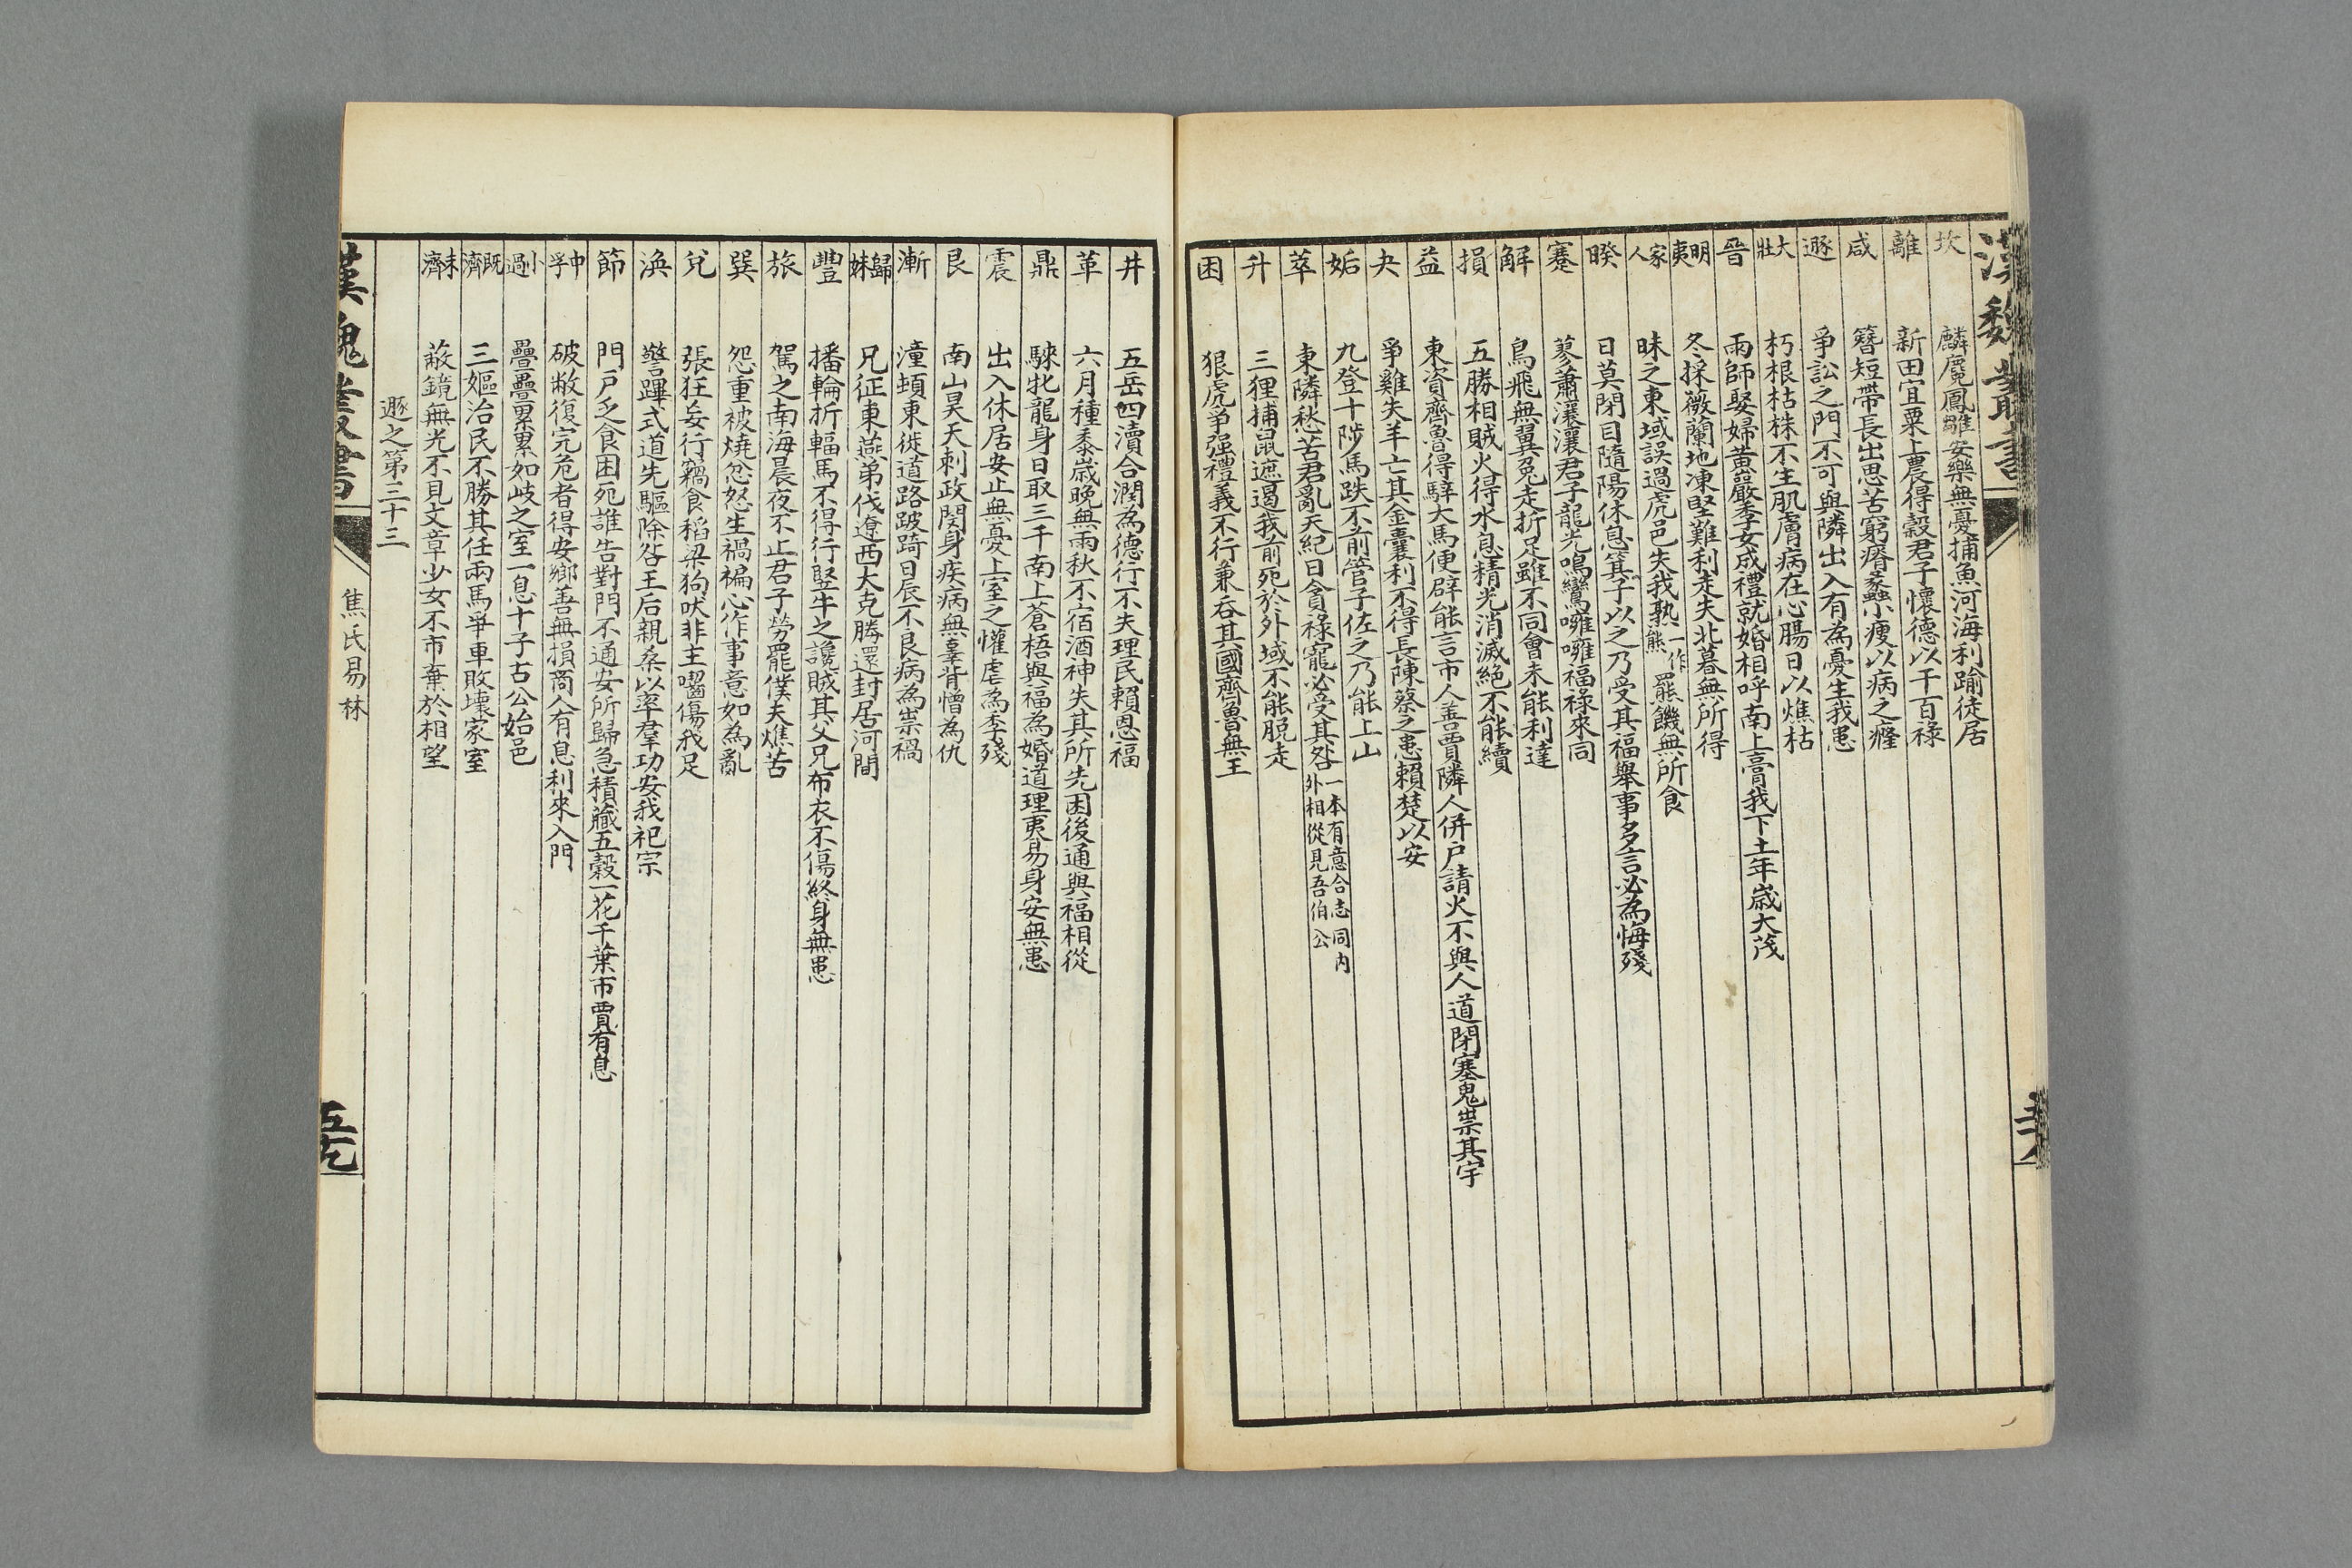 漢魏叢書
坎 麟魔鳳雛安樂無憂捕魚河海利踰徒居
離 新田宜粟上農得穀君子懷德以干百祿
咸 簪短帶長出思苦窮瘠蠡小瘦以病之癃
遯 爭訟之門不可與隣出入有為憂生我患
大壯 朽根枯株不生肌膚病在心腸日以燋枯
晉 雨師娶婦黃巖季女成禮就婚相呼南上膏我下土年歲大茂
明夷 冬採薇蘭地凍堅難利走失北暮無所得
家人 昧之東域誤過虎邑失我熟一作熊羆饑無所食
睽 日莫閉目隨陽休息箕子以之乃受其福舉事多言必為悔殘
蹇 蓼蕭瀼瀼君子龍光鳴鸞噰噰福祿來同
解 鳥飛無翼兔走折足雖不同會未能利達
損 五勝相賊火得水息精光消滅絕不能續
益 東資齊魯得騂大馬便辟能言市人善賈隣人併戶請火不與人道閉塞鬼祟其宇
夬 爭雞失羊亡其金囊利不得長陳蔡之患賴楚以安
姤 九登十陟馬跌不前管子佐之乃能上山
萃 東隣愁苦君亂天紀日貪祿寵必受其咎一本有意合志同內外相從見吾伯公
升 三狸捕鼠遮遏我前死於外域不能脫走
困 狠虎爭强禮義不行兼吞其國齊魯無王
井 五岳四瀆合潤為德行不失理民賴恩福
革 六月種黍歲晚無雨秋不宿酒神失其所先困後通與福相從
鼎 騋牝龍身日取三千南上蒼梧與福為婚道理夷易身安無患
震 出入休居安止無憂上室之懽虐為季殘
艮 南山昊天刺政閔身疾病無辜背憎為仇
漸 潼頓東徙道路跛踦日辰不良病為祟禍
歸妹 兄征東燕弟伐遼西大克勝還封居河間
豐 播輪折輻馬不得行豎牛之讒賊其父兄布衣不傷終身無患
旅 駕之南海晨夜不止君子勞罷僕夫憔苦
巽 怨重被燒忿怒生禍褊心作事意如為亂
兌 張狂妄行竊食稻粱狗吠非主囓傷我足
渙 警蹕式道先驅除咎王后親桑以率羣功安我祀宗
節 門戶乏食困死誰告對門不通安所歸急積藏五穀一花千葉市賈有息
中孚 破敝復完危者得安鄉善無損商人有息利來入門
小過 疊疊累累如岐之室一息十子古公始邑
既濟 三嫗治民不勝其任兩馬爭車敗壞家室
未濟 蔽鏡無光不見文章少女不市棄於相望
遯之第三十三
漢魏叢書
焦氏易林